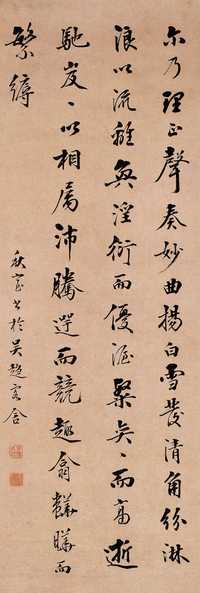 尔乃理正聲奏妙曲揚白雪發清角紛淋
浪以流離奐淫衍而優渥粲奕〻而高逝
馳岌〻以相属沛騰遌而競趣翕韡曄而
繁縟
書於吳趨客舍